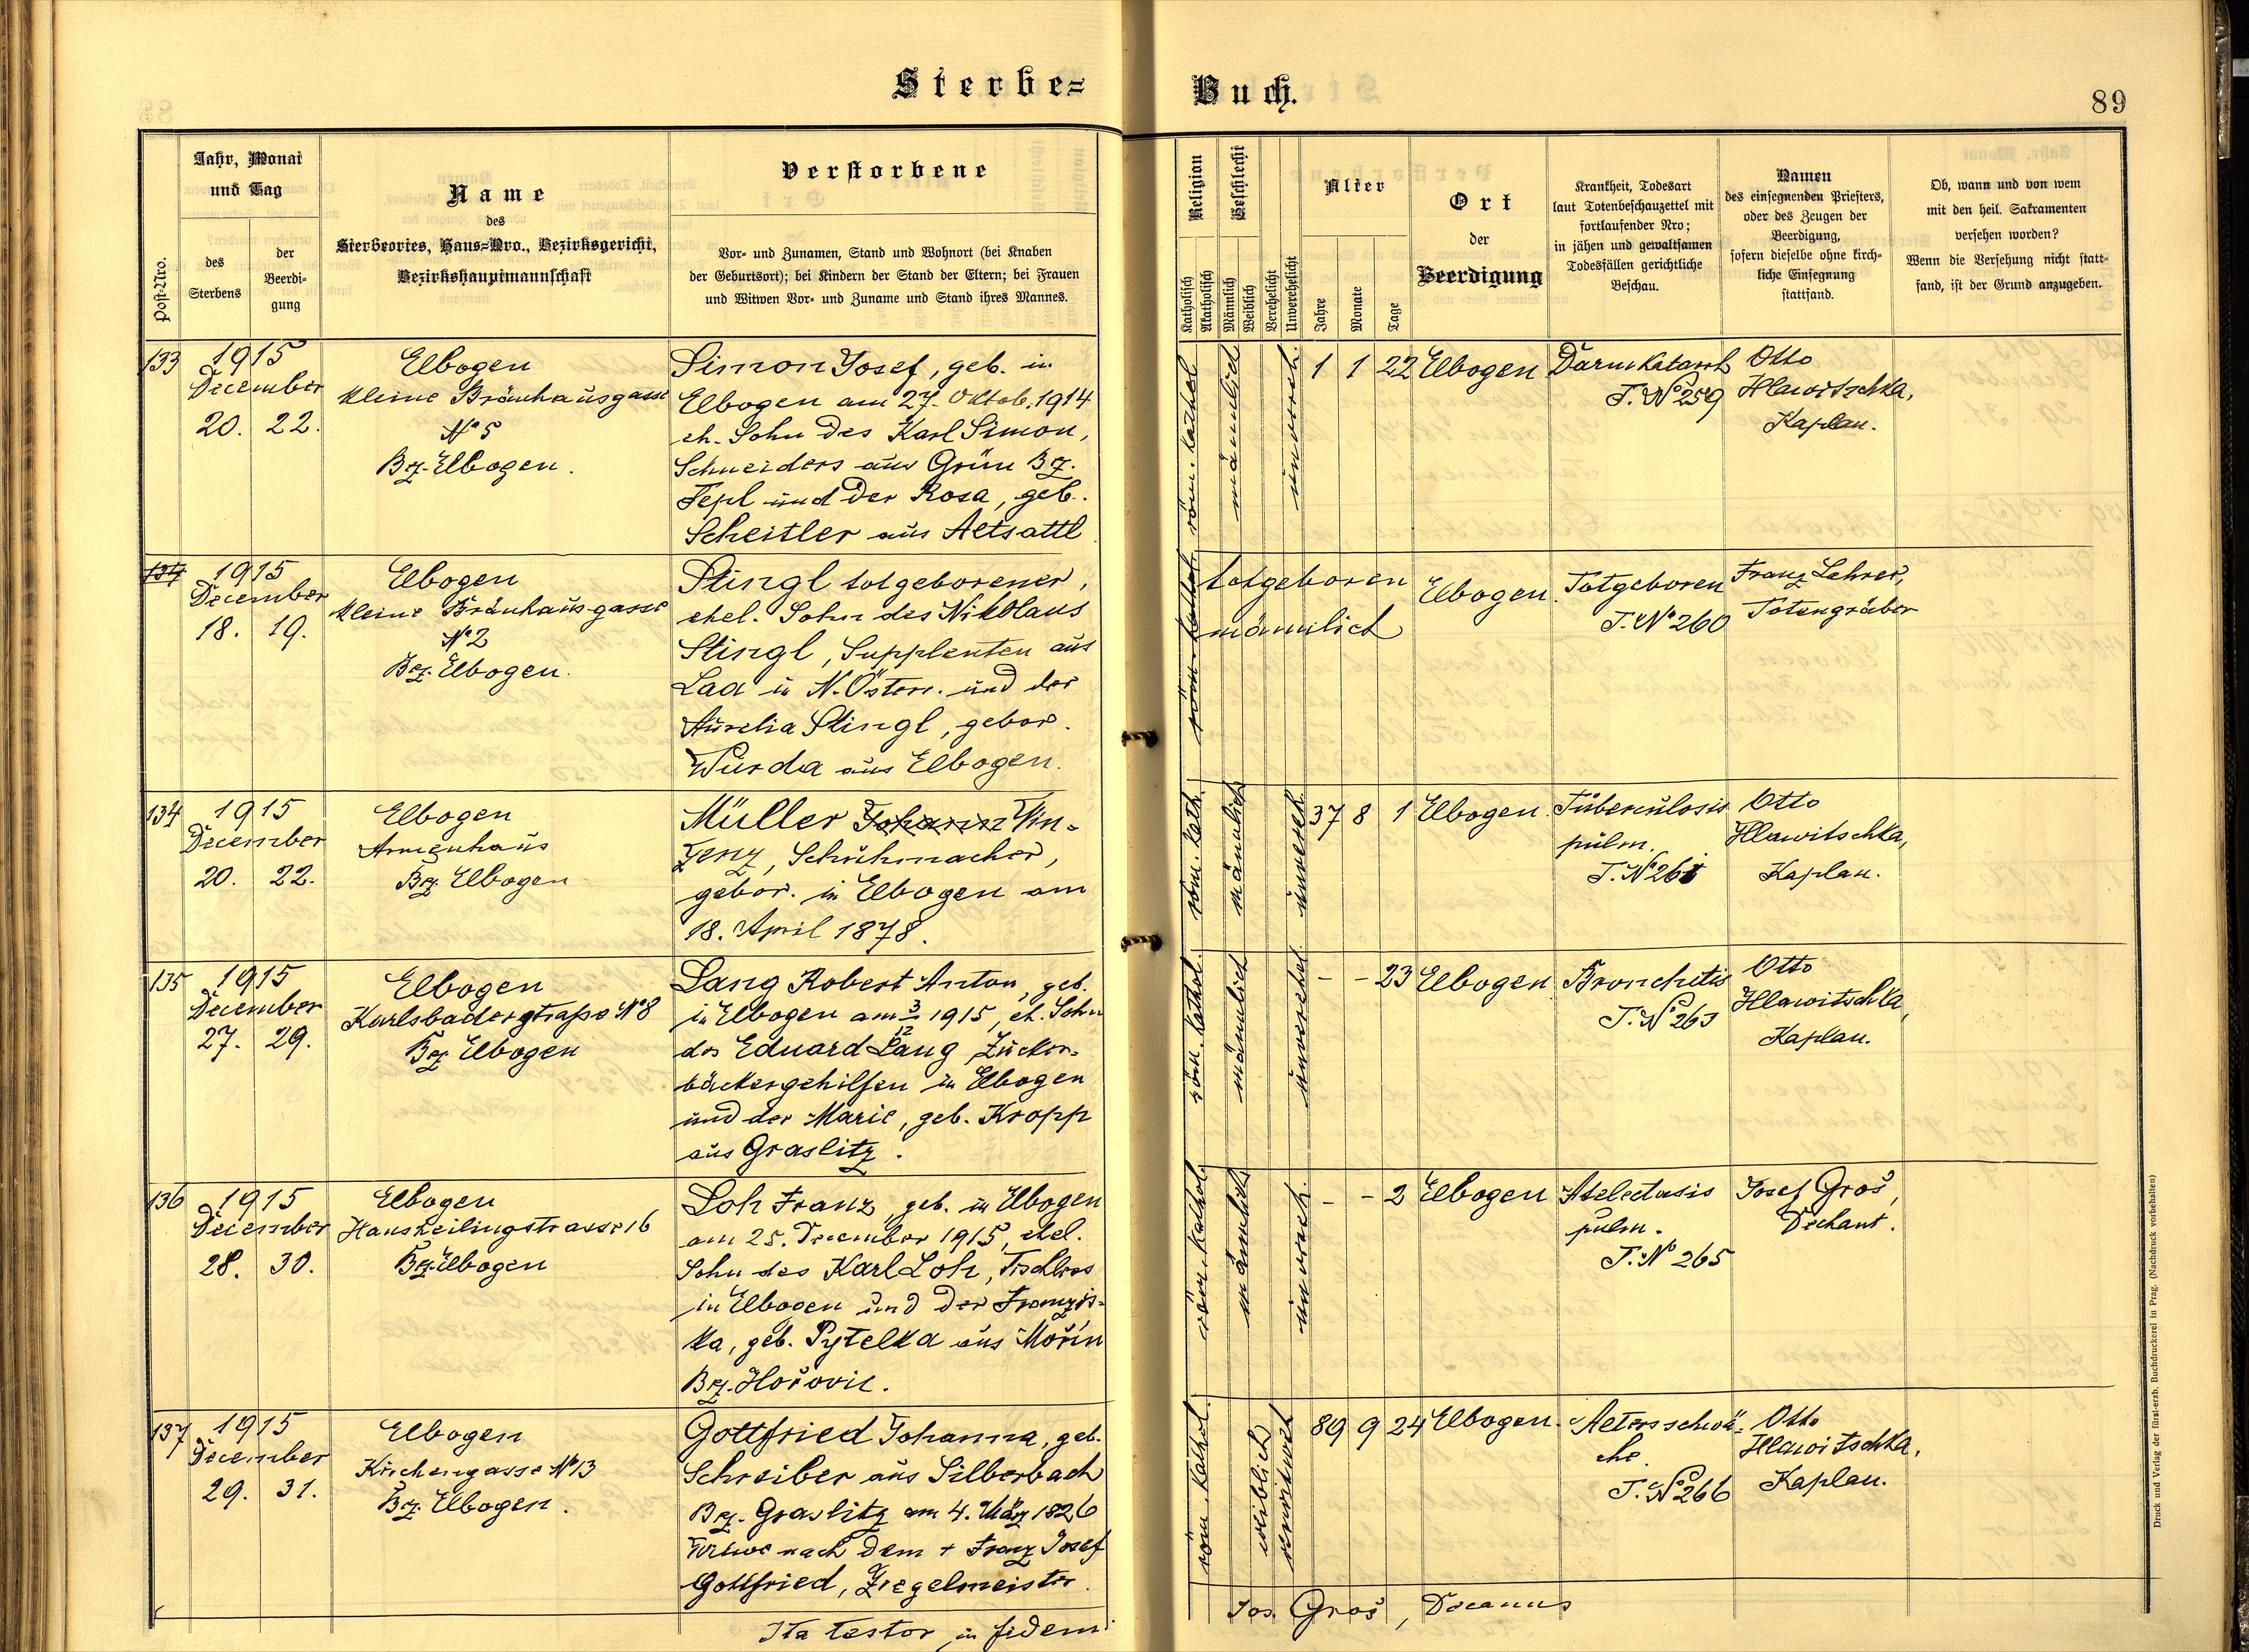 Sterbe-
Buch.
89
Post-Nro.
Jahr, Monat
und Tag
des
Sterbens
der
Beerdi-
gung
Name
des
Sterbeortes, Haus-Nro., Bezirksgericht,
Bezirkshauptmannschaft
Verstorbene
Vor- und Zunamen, Stand und Wohnort (bei Knaben
der Geburtsort); bei Kindern der Stand der Eltern; bei Frauen
und Witwen Vor- und Zuname und Stand ihres Mannes.
Religion
Katholisch
Akatholisch
Geschlecht
Männlich
Weiblich
Verehelicht
Unverehelicht
Alter
Jahre
Monate
Tage
Ort
der
Beerdigung
Krankheit, Todesart
laut Totenbeschauzettel mit
fortlaufender Nro;
in jähen und gewaltsamen
Todesfällen gerichtliche
Beschau.
Namen
des einsegnenden Priesters,
oder des Zeugen der
Beerdigung,
sofern dieselbe ohne kirch-
liche Einsegnung
stattfand.
Ob, wann und von wem
mit den heil. Sakramenten
versehen worden?
Wenn die Versehung nicht statt-
fand, ist der Grund anzugeben.
133
1915
December
20. 22.
Elbogen
kleine Bräuhausgasse
No 5
Bz. Elbogen.
Simon Josef, geb. in
Elbogen am 27. Oktob. 1914
eh. Sohn des Karl Simon,
Schneiders aus Grün Bz.
Tepl und der Rosa, geb.
Scheitler aus Altsattl
röm. kathol.
männlich
unvereh.
1 1 22
Elbogen
Darmkatarrh
T. No 259
Otto
Hlawitschka,
Kaplan.
134
1915
December
18. 19.
Elbogen
kleine Bräuhausgasse
No 2
Bz. Elbogen.
Stingl totgeborener,
ehel. Sohn des Nikolaus
Stingl, Supplenten aus
Laa in N. Österr. und der
Aurelia Stingl, gebor.
Wurda aus Elbogen.
röm. kathol.
totgeboren
männlich
Elbogen.
Totgeboren
T. No 260
Franz Lehrer,
Totengräber
134
1915
December
20. 22.
Elbogen
Armenhaus
Bz. Elbogen
Müller Johann Vin-
zenz, Schuhmacher,
gebor. in Elbogen am
18. April 1878.
röm. kath.
männlich
unvereh.
37 8 1
Elbogen.
Tuberkulosis
pulm.
T. No 261
Otto
Hlawitschka,
Kaplan.
135
1915
December
27. 29.
Elbogen
Karlsbaderstraße No 8
Bz. Elbogen
Lang Robert Anton, geb.
in Elbogen am 3/12 1915, eh. Sohn
des Eduard Lang Zucker-
bäckergehilfen in Elbogen
und der Marie, geb. Kropp
aus Graslitz.
röm. kathol.
männlich
unverehel.
- - 23
Elbogen
Bronchitis
T. No 263
Otto
Hlawitschka,
Kaplan.
136
1915
December
28. 30.
Elbogen
Hansheilingstrasse 16
Bz. Elbogen
Loh Franz, geb. in Elbogen
am 25. December 1915, ehel.
Sohn des Karl Loh, Tischlers
in Elbogen und der Franzis-
ka, geb. Pytelka aus Mořin
Bz. Hořovic.
röm. kathol.
männlich
unvereh.
- - 2
Elbogen
Atelectasis
pulm.
T. No 265
Josef Groš,
Dechant.
137
1915
December
29. 31.
Elbogen
Kirchengasse No 13
Bz. Elbogen.
Gottfried Johanna, geb.
Schreiber aus Silberbach
Bz. Graslitz am 4. März 1826
Witwe nach dem + Franz Josef
Gottfried, Ziegelmeister.
röm. kathol.
weiblich
verwitwet
89 9 24
Elbogen.
Altersschwä-
che.
T. No 266
Otto
Hlawitschka,
Kaplan.
Ita testor in fidem
Jos. Groš, Decanus
Druck und Verlag der fürst-erzb. Buchdruckerei in Prag. (Nachdruck vorbehalten)